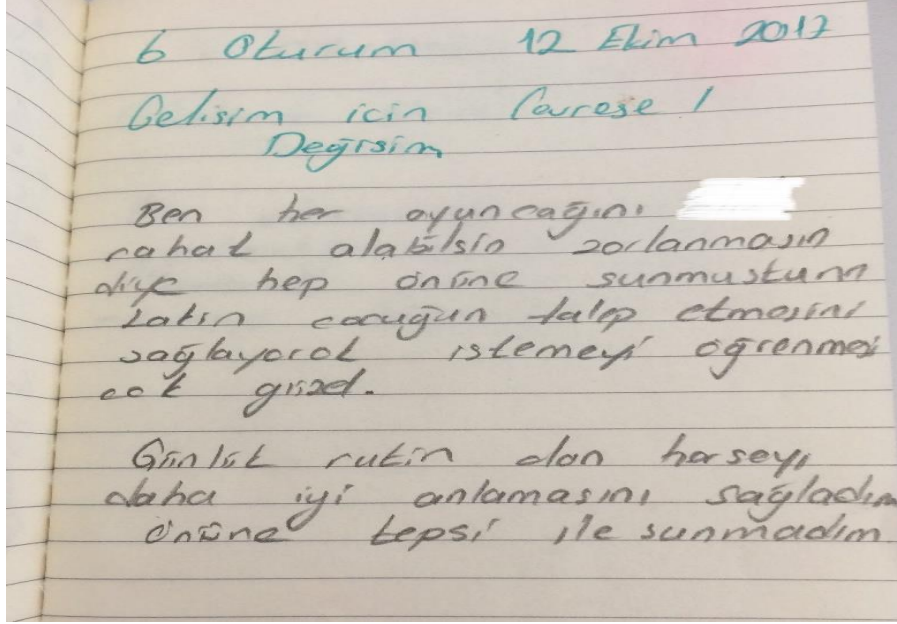 6 Oturum 12 Ekim 2017
Gelisim icin Cevrese 1
Değisim
Ben her oyuncağını
rahat alabilsin zorlanmasın
diye hep önüne sunmustum
Lakin cocuğun talep etmesini
sağlayarak istemeyi öğrenmesi
cok güzel.
Günlük rutin olan herseyi
daha iyi anlamasını sağladım
önüne tepsi ile sunmadım